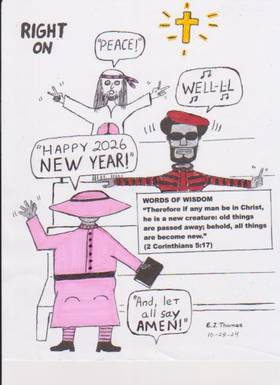 RIGHT
ON
"PEACE!"
WELL-LL
"HAPPY 2026
NEW YEAR!"
WORDS OF WISDOM
"Therefore if any man be in Christ,
he is a new creature: old things
are passed away; behold, all things
are become new."
(2 Corinthians 5:17)
"And, let
all say
AMEN!"
E.J. Thomas
10-29-24